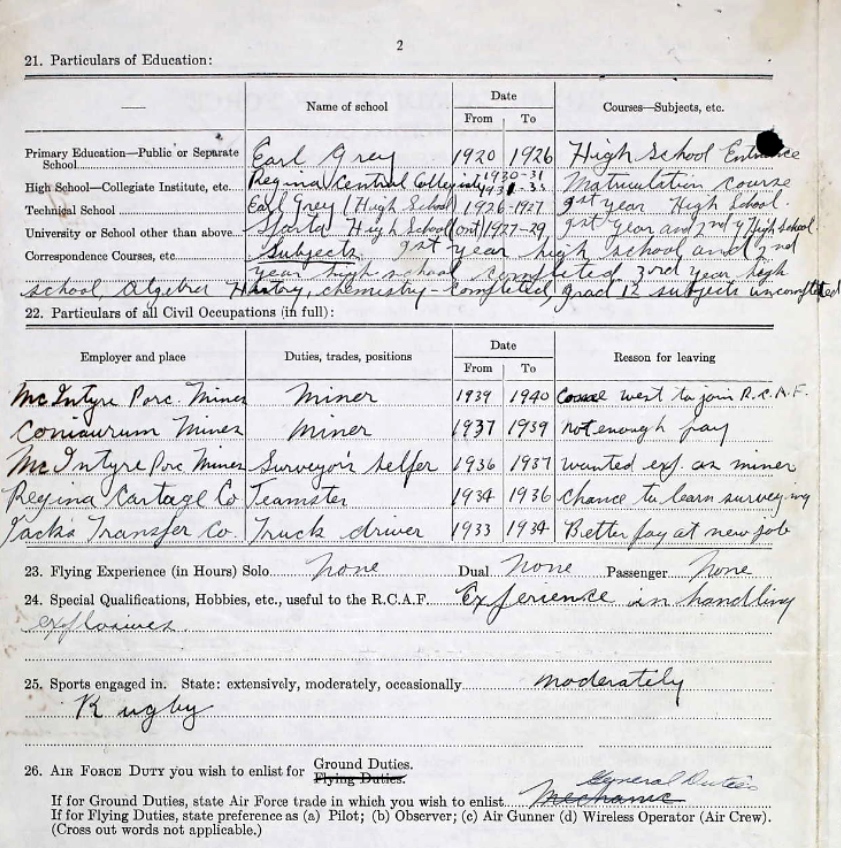 2
21. Particulars of Education:
Name of school
Date
From To
Courses—Subjects, etc.
Primary Education—Public or Separate School Earl Grey 1920 1926 High School Entrance
High School—Collegiate Institute, etc. Regina Central Collegiate 1930-31 Matriculation course
Technical School Earl Grey (High School) 1926-1927 1st year High School.
University or School other than above Sparta High School (ont) 1927-29 1st year and 2nd y High school.
Correspondence Courses, etc. Subjects. 1st year high school and 2nd
year high school completed 3rd year high
school, algebra History, chemistry - completed, grad 12 subjects uncompleted
22. Particulars of all Civil Occupations (in full):
Employer and place
Duties, trades, positions
Date
From To
Reason for leaving
McIntyre Porc. Mines Miner 1939 1940 went to join R.C.A.F.
Coniaurum Mines Miner 1937 1939 not enough pay
McIntyre Porc. Mines Surveyor's helper 1936 1937 wanted exp. as miner
Regina Cartage Co Teamster 1934 1936 chance to learn surveying
Jacks Transfer Co. Truck driver 1933 1934 Better pay at new job
23. Flying Experience (in Hours) Solo none Dual none Passenger none
24. Special Qualifications, Hobbies, etc., useful to the R.C.A.F. Experience in handling
explosives.
25. Sports engaged in. State: extensively, moderately, occasionally moderately
Rugby
26. AIR FORCE DUTY you wish to enlist for Ground Duties.
Flying Duties.
General Duties
If for Ground Duties, state Air Force trade in which you wish to enlist Mechanic
If for Flying Duties, state preference as (a) Pilot; (b) Observer; (c) Air Gunner (d) Wireless Operator (Air Crew).
(Cross out words not applicable.)